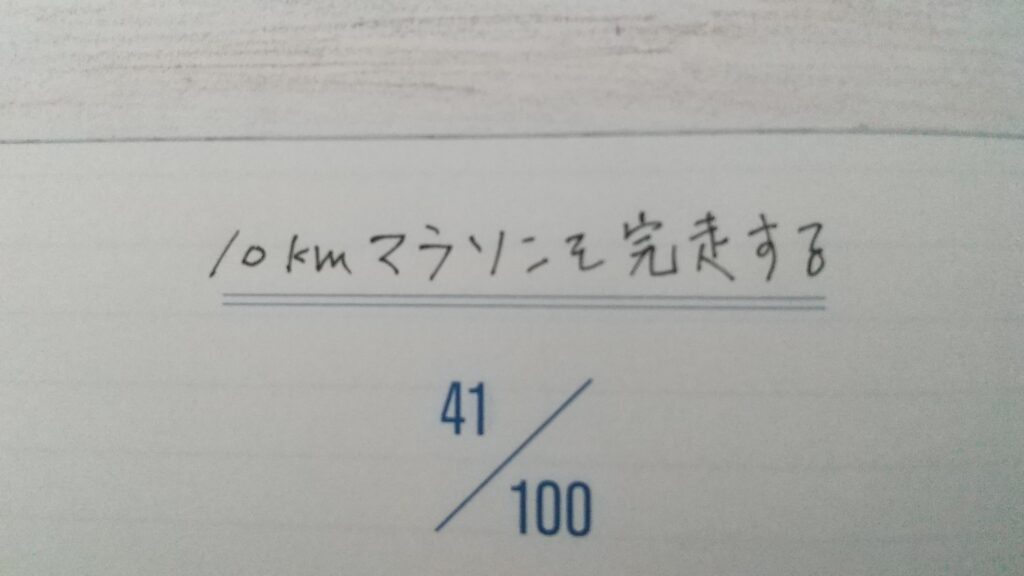 10kmマラソンを完走する
41/100